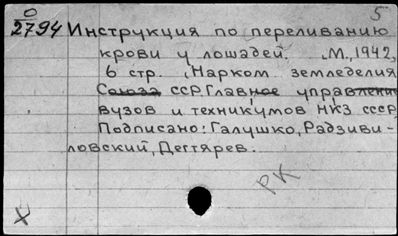 О 5
2794 Инструкция по переливанию
крови у лошадей. М., 1942,
6 стр. (Нарком земледелия
Союза ССР. Главное управление
вузов и техникумов НКЗ СССР,
Подписано: Галушко, Радзиви-
ловский, Дегтярев.
РК
X